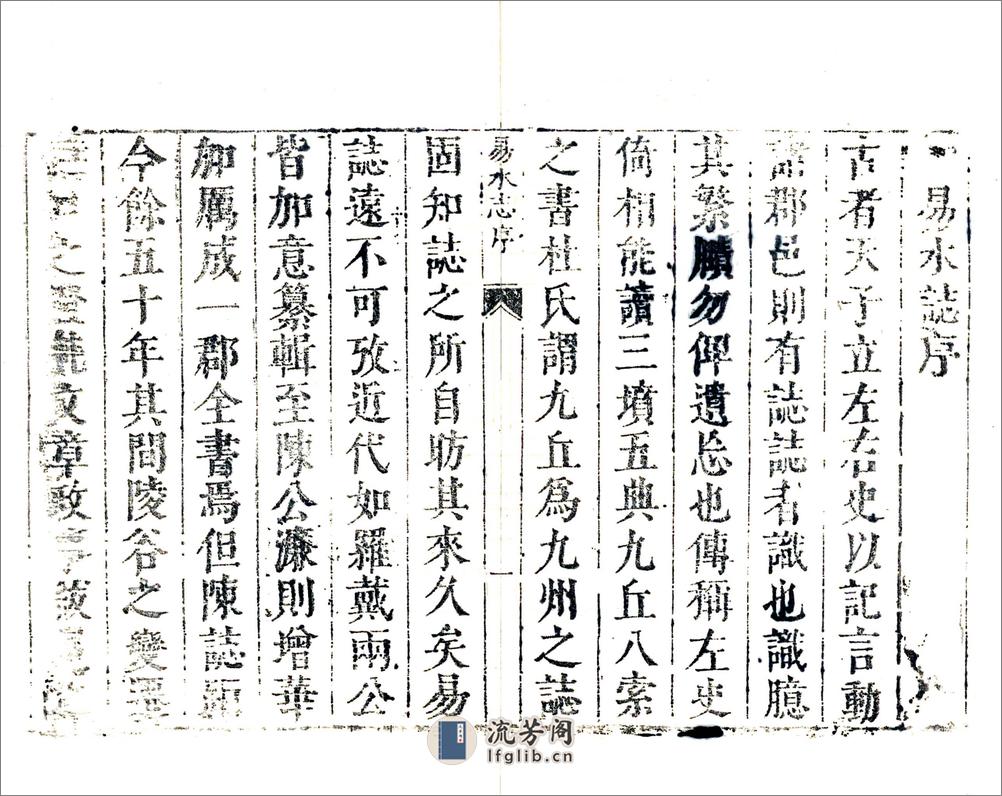 易水誌序
古者天子立左右史以記言動
諸郡邑則有誌誌者識也識臆
其繁賾勿俾遺忘也傳稱左史
倚相能讀三墳五典九丘八索
之書杜氏謂九丘為九州之誌
易水志序
一
固知誌之所自昉其來久矣易
誌遠不可攷近代如羅戴兩公
皆加意纂輯至陳公濂則增華
加厲成一郡全書焉但陳誌距
今餘五十年其間陵谷之變遷
之 文章政事
流芳阁
lfglib.cn